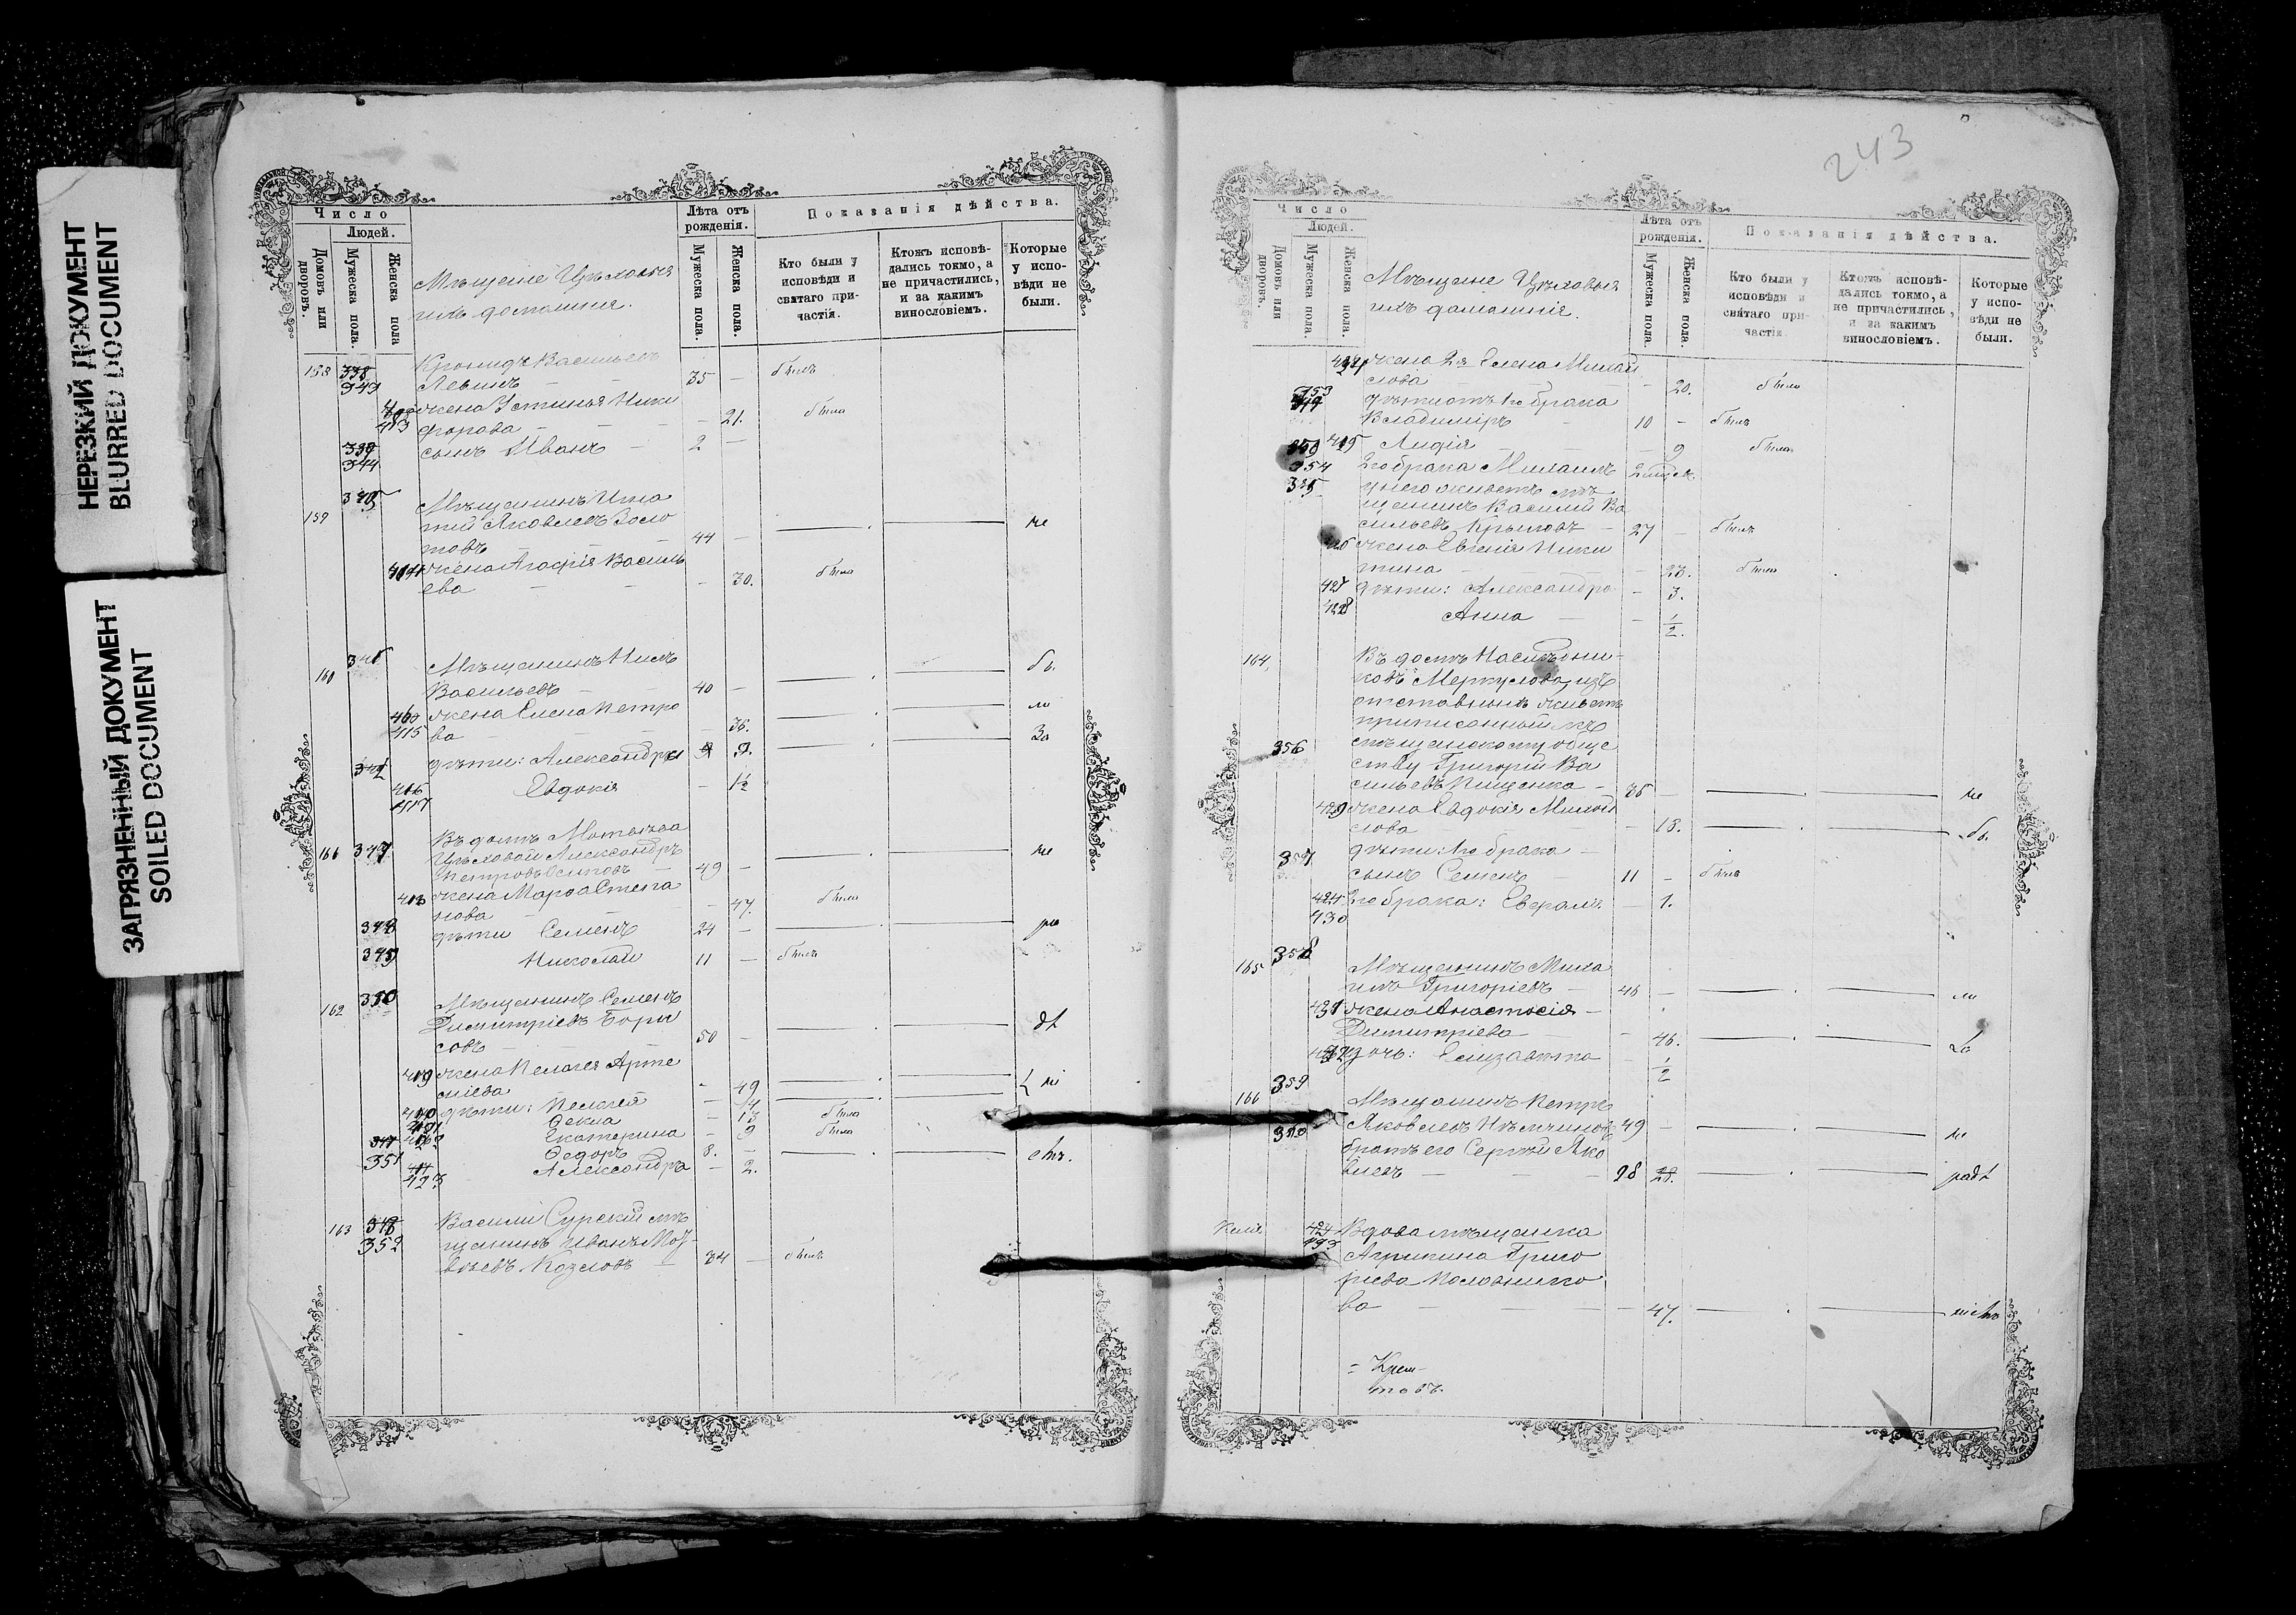 НЕРЕЗКИЙ ДОКУМЕНТ
BLURRED DOCUMENT
ЗАГРЯЗНЕННЫЙ ДОКУМЕНТ
SOILED DOCUMENT
Число
Людей.
Домовъ или дворовъ.
Мужеска пола.
Женска пола
Мѣщане Цѣховыя
ихъ домашнія.
Лѣта отъ рожденія.
Мужеска пола.
Женска пола.
Показанія дѣйства.
Кто были у исповѣди и святаго причастія.
Ктожъ исповѣдались токмо, а не причастились, и за какимъ винословіемъ.
Которые у исповѣди не были.
158 338 Кронидъ Васильевъ
343 Левинъ 35 — былъ
жена Устинья Ники
413 форова — 21. была
339 сынъ Иванъ — 2 —
344
345 Мѣщанинъ Ипа
159 тій Яковлевъ Золо
товъ 44 — не
414 жена Агафія Василь
ева — 30. была
346 Мѣщанинъ
160 Васильевъ 40 — бы
жена Елена Петро
415 ва — 36. ли
дѣти: Александра 9. За
416 Евдокія — 1½
417
Въ домѣ Матвѣева
347 Цѣховой Александръ
Петровъ Осиповъ 49 — не
жена Марѳа Степа
нова — 47. была
348 дѣти Семенъ 24 — ра
349 Николай 11 — былъ
350 Мѣщанинъ Семенъ
162 Димитріевъ Бори
совъ 50 — дѣ
419 жена Пелагея Арте
міева — 49 ні
дѣти: Пелагея — 14
Ѳекла — 13 была
Екатерина — 9 была
351 Ѳедоръ 8. —
423 Александра — 2.
163 Василій Сурскій мѣ
352 щанинъ Иванъ Мат
вѣевъ Козловъ 34 — былъ
243
Число
Людей.
Домовъ или дворовъ.
Мужеска пола.
Женска пола.
Мѣщане Цѣховыя
ихъ домашнія.
Лѣта отъ рожденія.
Мужеска пола.
Женска пола.
Показанія дѣйства.
Кто были у исповѣди и святаго причастія.
Ктожъ исповѣдались токмо, а не причастились, и за какимъ винословіемъ.
Которые у исповѣди не были.
424 жена 2я Елена Михай
лова — 20. была
353 дѣти отъ 1го брака
Владиміръ 10 — былъ
425 Лидія — 9 была
354 2го брака Михаилъ 2 мѣсяц.
355 у него живетъ мѣ
щанинъ Василій Ва
сильевъ Крыловъ 27 — былъ
жена Евгенія Ники
тина — 23. была
427 дѣти: Александра — 3.
428 Анна — ½.
164, Въ домѣ Наслѣдни
ковъ Меркулова, изъ
отставныхъ живетъ
приписанный къ
356 мѣщанскому обще
ству Григорій Ва
сильевъ Пищенка — не
429 жена Евдокія Михай
лова — 18. бы.
дѣти: 1го брака
357 сынъ Семенъ 11 — былъ
2го брака: — 1.
430
358
165 Мѣщанинъ Миха
илъ Григоріевъ 46 — ли
431 жена Анастасія
Димитріева — 46. За
432 дочь: Елизавета — ½
359
166 Мѣщанинъ Петръ
Яковлевъ 49 — не
360 братъ его Сергѣй Яко
влевъ 28 радѣ
424 Вдова мѣщанка
433 Агрипина Григо
рьева
ва — 47. ніемъ